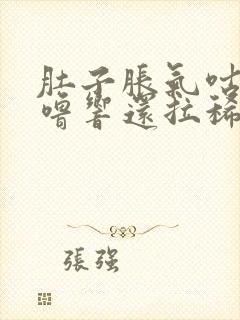 肚子脹氣咕
嚕響還拉稀
張强